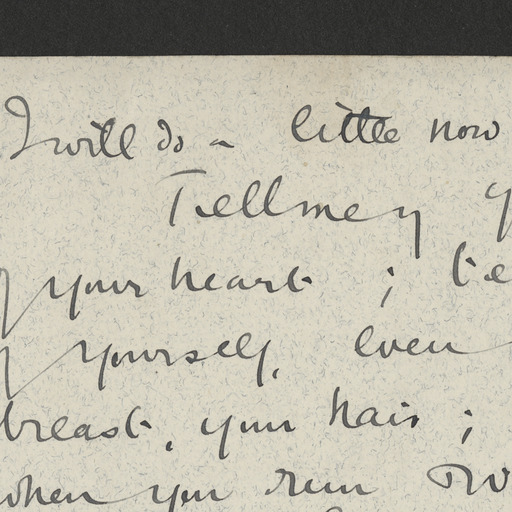 I will do a little now
Tell me of y
of your heart ; te
of yourself, even
breast, your hair ;
when you run